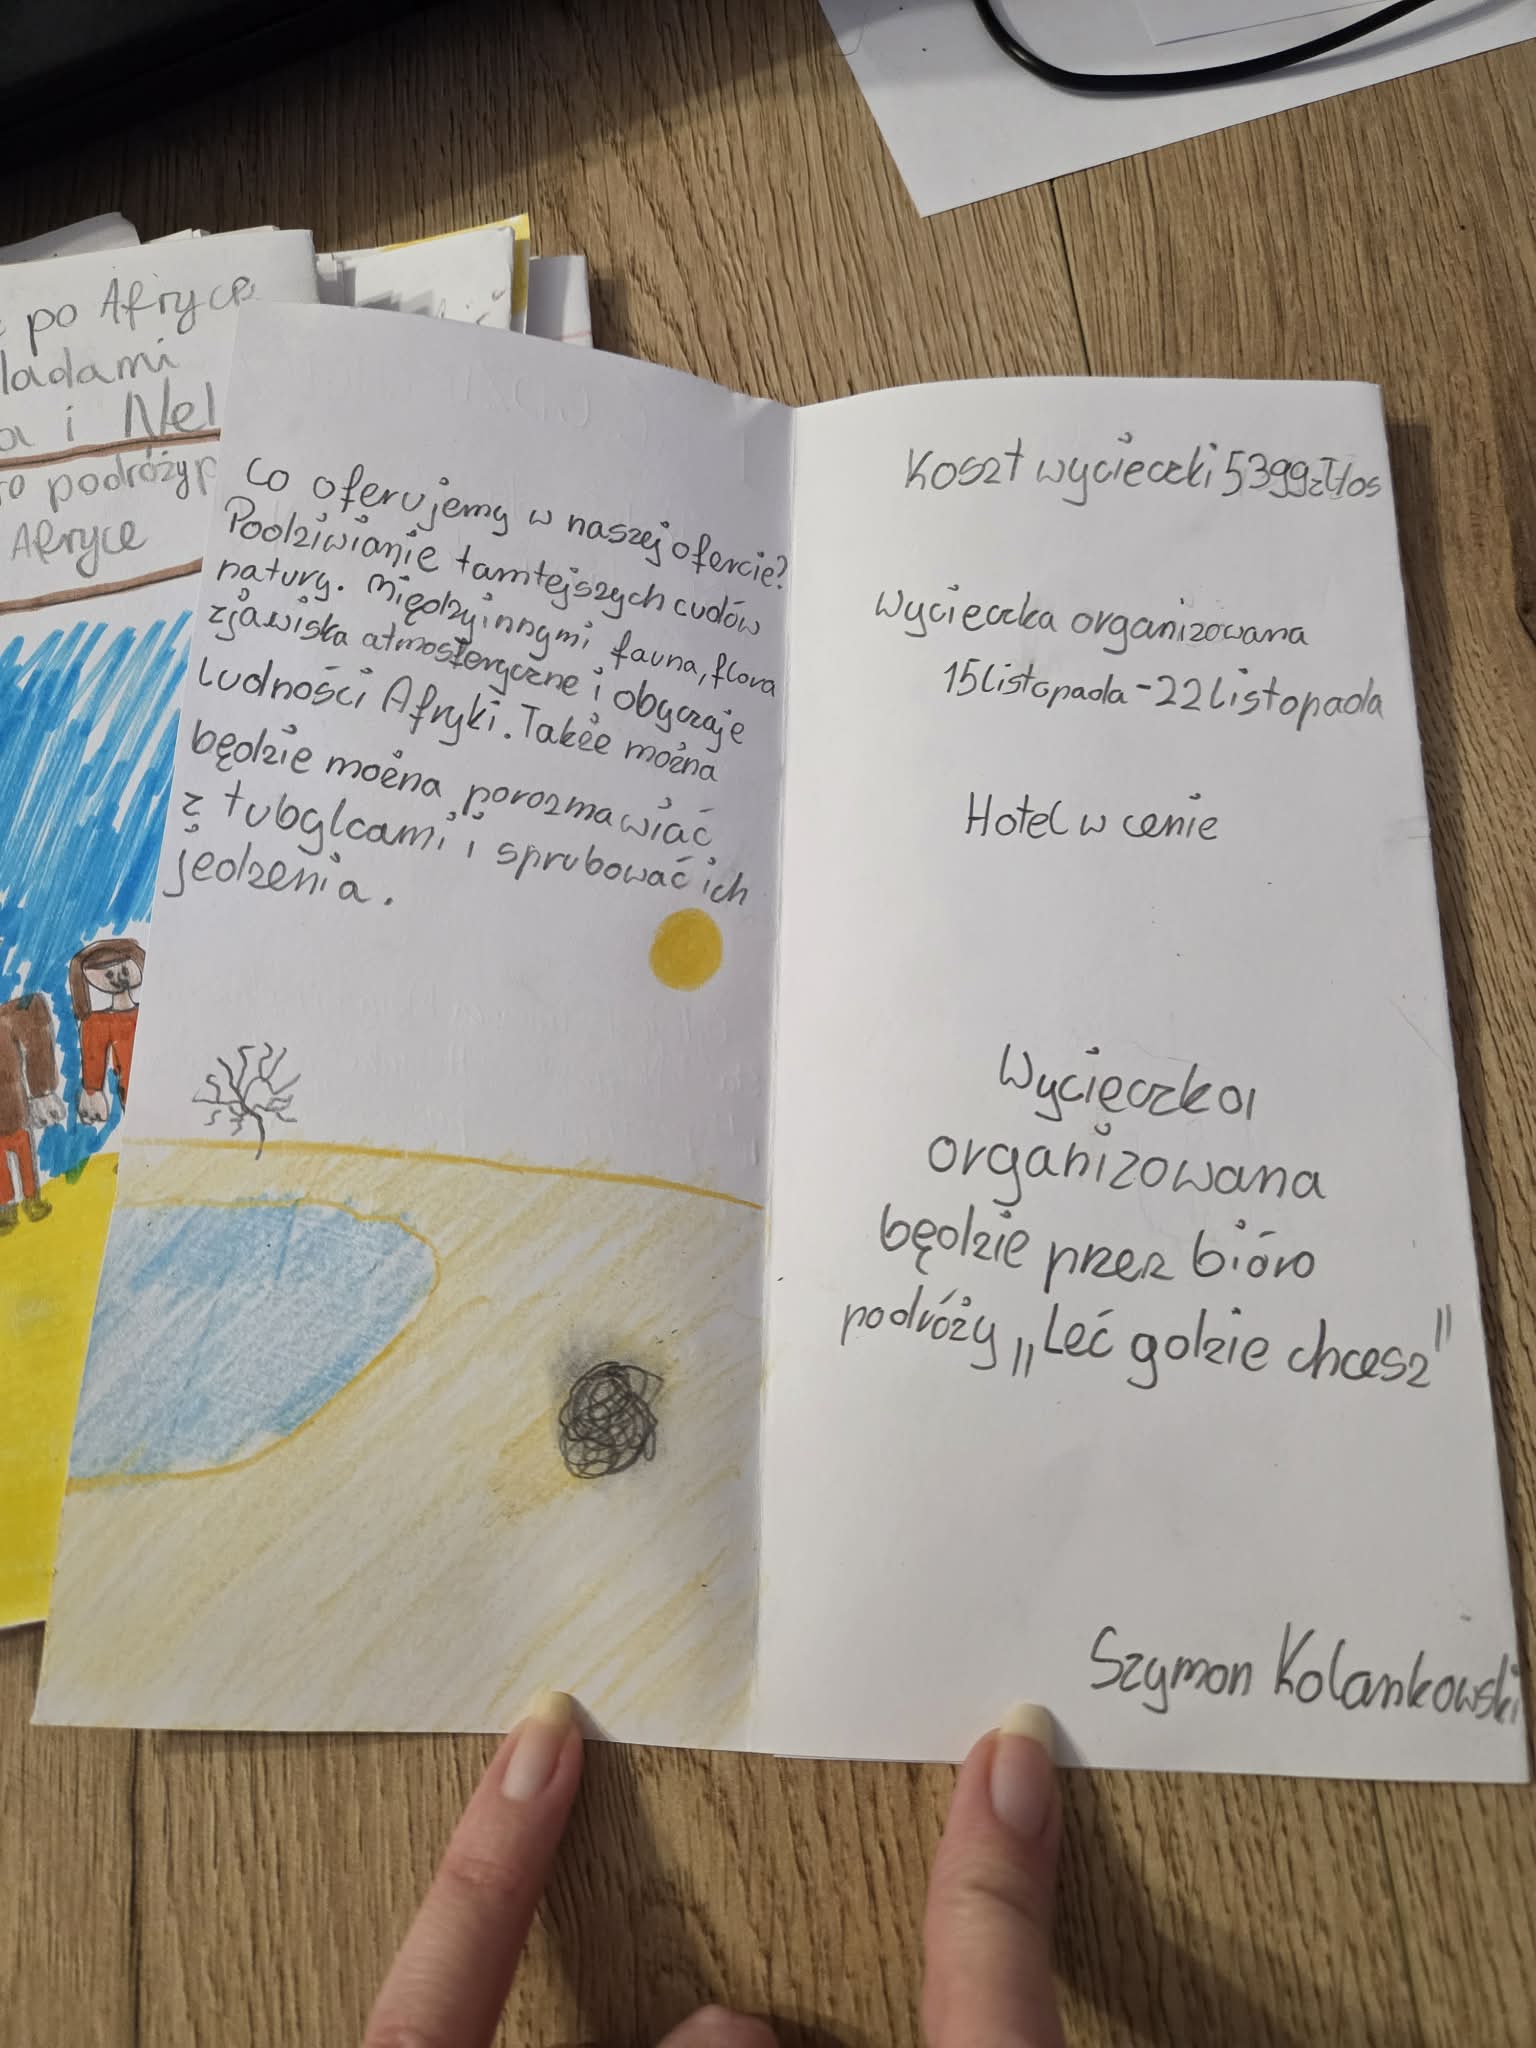 po Afryce
ladami
i Nel
podróży
Afryce
Co oferujemy w naszej ofercie?
Podziwianie tamtejszych cudów
natury. Między innymi fauna, flora
zjawiska atmosferyczne i obyczaje
Ludności Afryki. Także można
będzie można porozmawiać
z tubylcami i sprubować ich
jedzenia.
Koszt wycieczki 5399zł/os
Wycieczka organizowana
15 Listopada - 22 Listopada
Hotel w cenie
Wycieczka
organizowana
będzie przez bióro
podróży „Leć gdzie chcesz"
Szymon Kolankowski